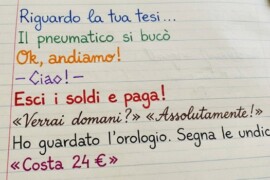 Riguardo la tua tesi...
Il pneumatico si bucò
Ok, andiamo!
– Ciao! –
Esci i soldi e paga!
«Verrai domani?» «Assolutamente!»
Ho guardato l'orologio. Segna le undic
«Costa 24 €»